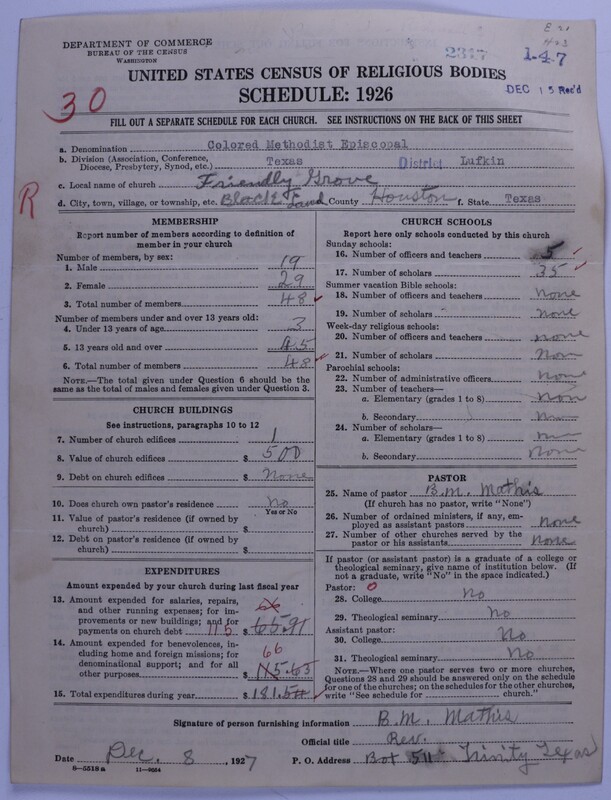 DEPARTMENT OF COMMERCE
BUREAU OF THE CENSUS
WASHINGTON
2317
1-4-7
DEC 15 Rec'd
UNITED STATES CENSUS OF RELIGIOUS BODIES
SCHEDULE: 1926
30
FILL OUT A SEPARATE SCHEDULE FOR EACH CHURCH. SEE INSTRUCTIONS ON THE BACK OF THIS SHEET
a. Denomination Colored Methodist Episcopal
b. Division (Association, Conference, Diocese, Presbytery, Synod, etc.) Texas District Lufkin
c. Local name of church Friendly Grove
R
d. City, town, village, or township, etc. Black Land County Houston f. State Texas
MEMBERSHIP
Report number of members according to definition of member in your church
Number of members, by sex:
1. Male 19
2. Female 29
3. Total number of members 48
Number of members under and over 13 years old:
4. Under 13 years of age 3
5. 13 years old and over 45
6. Total number of members 48
NOTE.—The total given under Question 6 should be the same as the total of males and females given under Question 3.
CHURCH BUILDINGS
See instructions, paragraphs 10 to 12
7. Number of church edifices 1
8. Value of church edifices $ 500
9. Debt on church edifices $ None
10. Does church own pastor's residence No
Yes or No
11. Value of pastor's residence (if owned by church) $
12. Debt on pastor's residence (if owned by church) $
EXPENDITURES
Amount expended by your church during last fiscal year
13. Amount expended for salaries, repairs, and other running expenses; for improvements or new buildings; and for payments on church debt 115 $ 65.91
14. Amount expended for benevolences, including home and foreign missions; for denominational support; and for all other purposes 66 $ 115.65
15. Total expenditures during year $ 181.5
CHURCH SCHOOLS
Report here only schools conducted by this church
Sunday schools:
16. Number of officers and teachers 5
17. Number of scholars 35
Summer vacation Bible schools:
18. Number of officers and teachers None
19. Number of scholars None
Week-day religious schools:
20. Number of officers and teachers none
21. Number of scholars Non
Parochial schools:
22. Number of administrative officers None
23. Number of teachers—
a. Elementary (grades 1 to 8) Non
b. Secondary
24. Number of scholars—
a. Elementary (grades 1 to 8)
b. Secondary None
PASTOR
25. Name of pastor B. M. Mathis
(If church has no pastor, write "None")
26. Number of ordained ministers, if any, employed as assistant pastors None
27. Number of other churches served by the pastor or his assistants None
If pastor (or assistant pastor) is a graduate of a college or theological seminary, give name of institution below. (If not a graduate, write "No" in the space indicated.)
Pastor: 0
28. College No
29. Theological seminary No
Assistant pastor:
30. College No
31. Theological seminary No
NOTE.—Where one pastor serves two or more churches, Questions 28 and 29 should be answered only on the schedule for one of the churches; on the schedules for the other churches, write "See schedule for church."
Signature of person furnishing information B. M. Mathis
Official title Rev.
Date Dec. 8, 1927 P. O. Address Box 511 Trinity Texas
8—5518a 11—9654